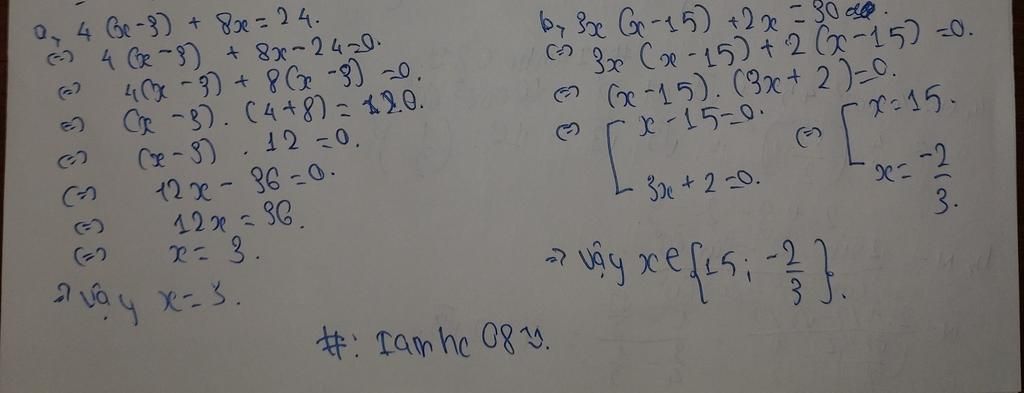 a, 4 (x-3) + 8x = 24.
(=) 4 (x-3) + 8x - 24 = 0.
(=) 4(x-3) + 8(x-3) = 0.
(=) (x-3) . (4+8) = 0.
(=) (x-3) . 12 = 0.
(=) 12x - 36 = 0.
(=) 12x = 36.
(=) x = 3.
=> Vậy x = 3.
b, 3x (x-15) + 2x = 30
(=) 3x (x-15) + 2 (x-15) = 0.
(=) (x-15) . (3x+2) = 0.
(=) [ x - 15 = 0. (=) [ x = 15.
3x + 2 = 0. x = -2/3.
=> Vậy x ∈ {15; -2/3}.
#: Ianhc 08